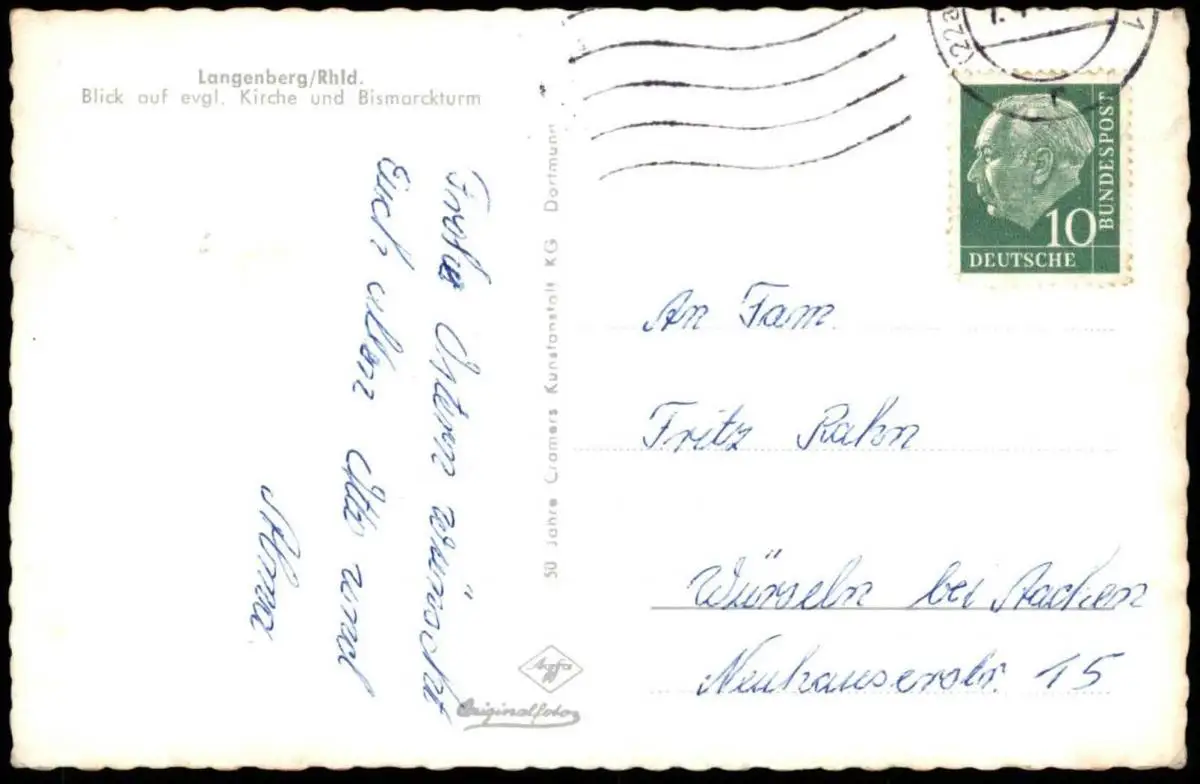 Langenberg/Rhld.
Blick auf evgl. Kirche und Bismarckturm
Frohe Ostern wünscht
Euch allen Otto und
Alma.
50 Jahre Cramers Kunstanstalt KG Dortmund
Agfa
Originalfoto
22a
1
10
DEUTSCHE
BUNDESPOST
An Fam.
Fritz Rahn
Würseln bei Aachen
Neuhauserstr. 15